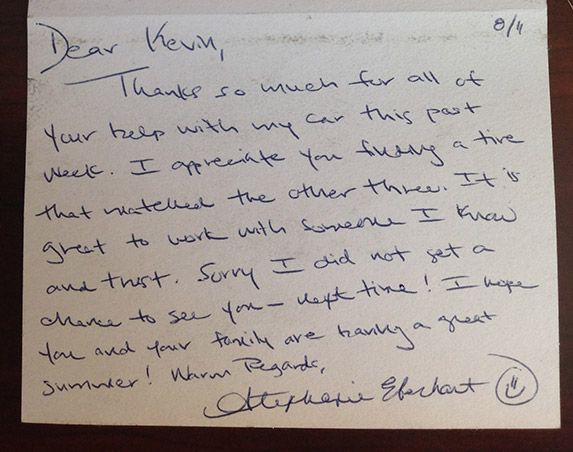 8/4
Dear Kevin,
Thanks so much for all of
your help with my car this past
week. I appreciate you finding a tire
that matched the other three. It is
great to work with someone I know
and trust. Sorry I did not get a
chance to see you – next time! I hope
you and your family are having a great
summer! Warm Regards,
Stephanie Eberhart